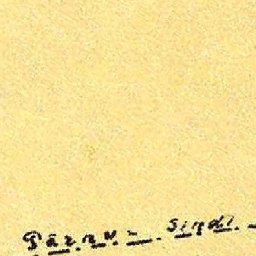 Pärnu - Sindi -